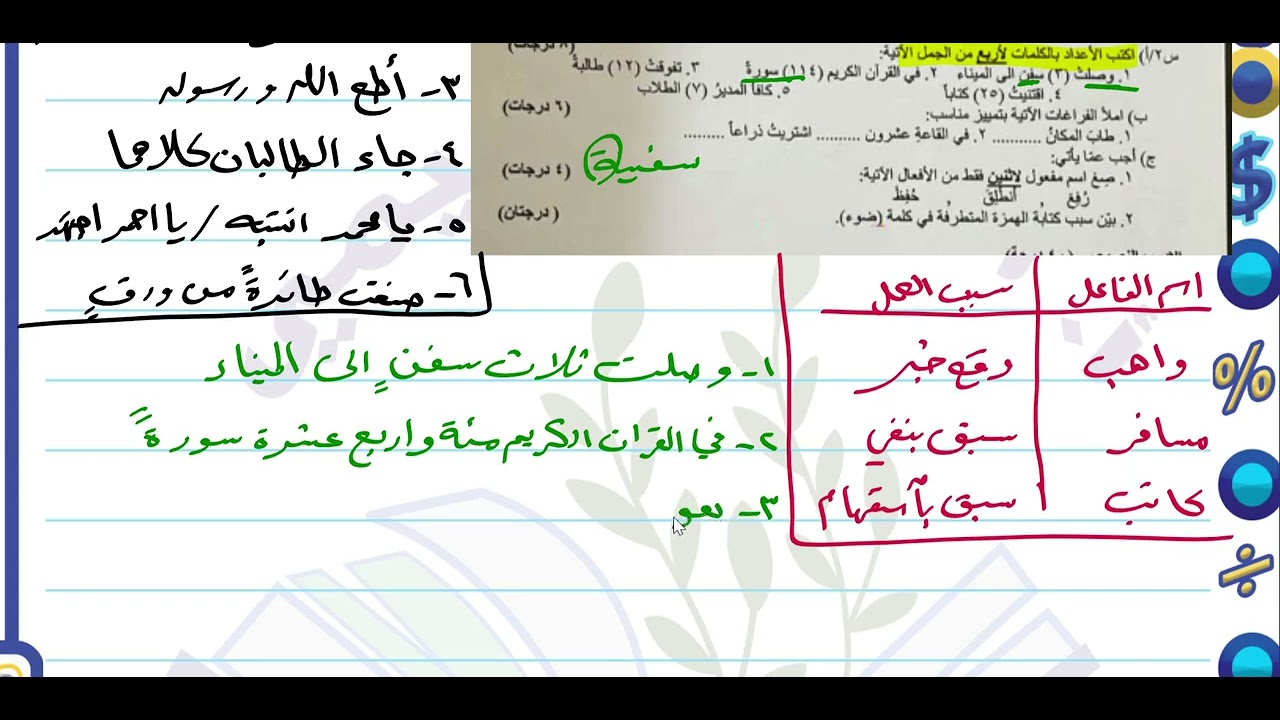 ٣- أطع الله ورسوله
٤- جاء الطالبان كلاهما
٥- يا محمد انتبه / يا احمد اجتهد
٦- صنعت طائرةً من ورقٍ
س٢/أ) اكتب الأعداد بالكلمات لأربع من الجمل الآتية: (٨ درجات)
١. وصلتْ (٣) سفن الى الميناء ٢. في القرآن الكريم (١١٤) سورة ٣. تفوقتْ (١٢) طالبة
٤. اقتنيتُ (٢٥) كتاباً ٥. كافأ المديرُ (٧) الطلاب
ب) املأ الفراغات الآتية بتمييز مناسب: (٦ درجات)
١. طابَ المكانُ ........... ٢. في القاعةِ عشرون .......... اشتريتُ ذراعاً .........
ج) أجب عمّا يأتي: (٤ درجات)
١. صِغ اسم مفعول لاثنين فقط من الأفعال الآتية:
رُفِعَ , أنطلِقَ , حُفِظَ
٢. بيّن سبب كتابة الهمزة المتطرفة في كلمة (ضوء). (درجتان)
سفينة
اسم الفاعل سبب العمل
واهب وقع خبر
مسافر سبق بنفي
كاتب سبق بأستفهام
١- وصلت ثلاث سفنٍ إلى الميناء
٢- في القران الكريم مئة واربع عشرة سورةً
٣-